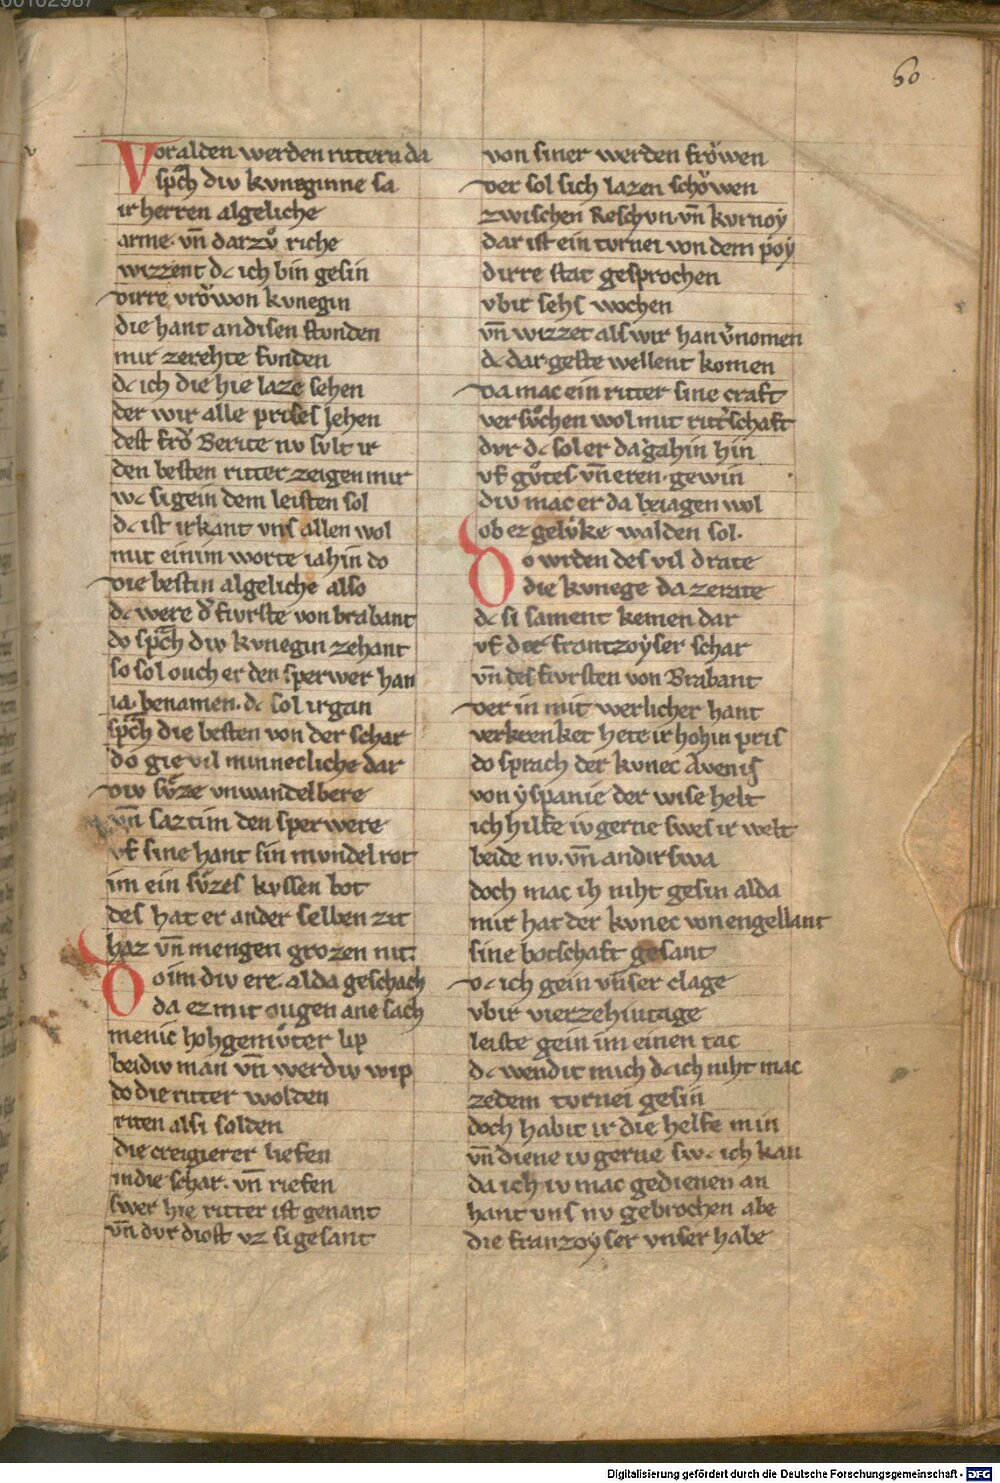 00102987
60
Vor alden werden rittern da
spͣch div kvneginne sa
ir herren algeliche
arme. vn̄ darzvͦ riche
wizzent dc ich bin gesin
dirre vrŏwon kvnegin
die hant an disen stvnden
mir zerehte fvnden
dc ich die hie laze sehen
der wir alle prises Jehen
dest frŏ Berite nv svlt ir
den besten ritter zeigen mir
wc si gein dem leisten sol
dc ist irkant vns allen wol
mit einim worte iahin do
die bestin algeliche also
dc were dˀ fivrste von brabant
do spͣch div kvnegin zehant
so sol ouch er den sperwer han
ia. benamen. dc sol irgan
spͣch die besten von der schar
do gie vil minnecliche dar
div sv̊ze vnwandelbere
vn̄ saztim den sperwere
vf sine hant sin mvndel rot
im ein sv̊zes kvssen bot
des hat er ander selben zit
haz vn̄ mengen grozen nit.
Do im div ere. alda geschach
da ez mit ougen ane sach
menic hohgemv̊ter lip
beidiv man vn̄ werdiv wip
do die ritter wolden
riten alsi solden
die creigierer liefen
indie schar. vn̄ riefen
swer hie ritter ist genant
vn̄ dvr diost vz si gesant
von siner werden frŏwen
der sol sich lazen schŏwen
zwischen Reschvn. vn̄ kvrnoẏ
dar ist ein tvrnei von dem poẏ
dirre stat gesprochen
vbir sehs wochen
vn̄ wizzet als wir han vˀnomen
dc dar geste wellent komen
da mac ein ritter sine craft
versv̊chen wol mit ritˀschaft
dvr dc sol er da gahin hin
vf gv̊tes vn̄ eren. gewin
div mac er da beiagen wol
ob er gelvͤke walden sol.
Do wrden des vil drate
die kvnege da zerate
dc si sament kemen dar
vf der frantzoẏser schar
vn̄ des fivrsten von Brabant
der in mit werlicher hant
verkrenket hete ir hohin pris
do sprach der kvnec Avenis
von ẏspanie der wise helt
ich hilfe iv gerne swes ir welt
beide nv. vn̄ andirswa
doch mac ih niht gesin alda
mir hat der kvnec von engellant
sine botschaft gesant
dc ich gein vnser clage
vbir vierzehintage
leiste gein im einen tac
dc wendit mich dc ich niht mac
zedem tvrnei gesin
doch habit ir die helfe min
vn̄ diene iv gerne swc ich kan
da ich iv mac gedienen an
hant vns nv gebrochen abe
die franzoẏser vnser habe
Digitalisierung gefördert durch die Deutsche Forschungsgemeinschaft - DFG